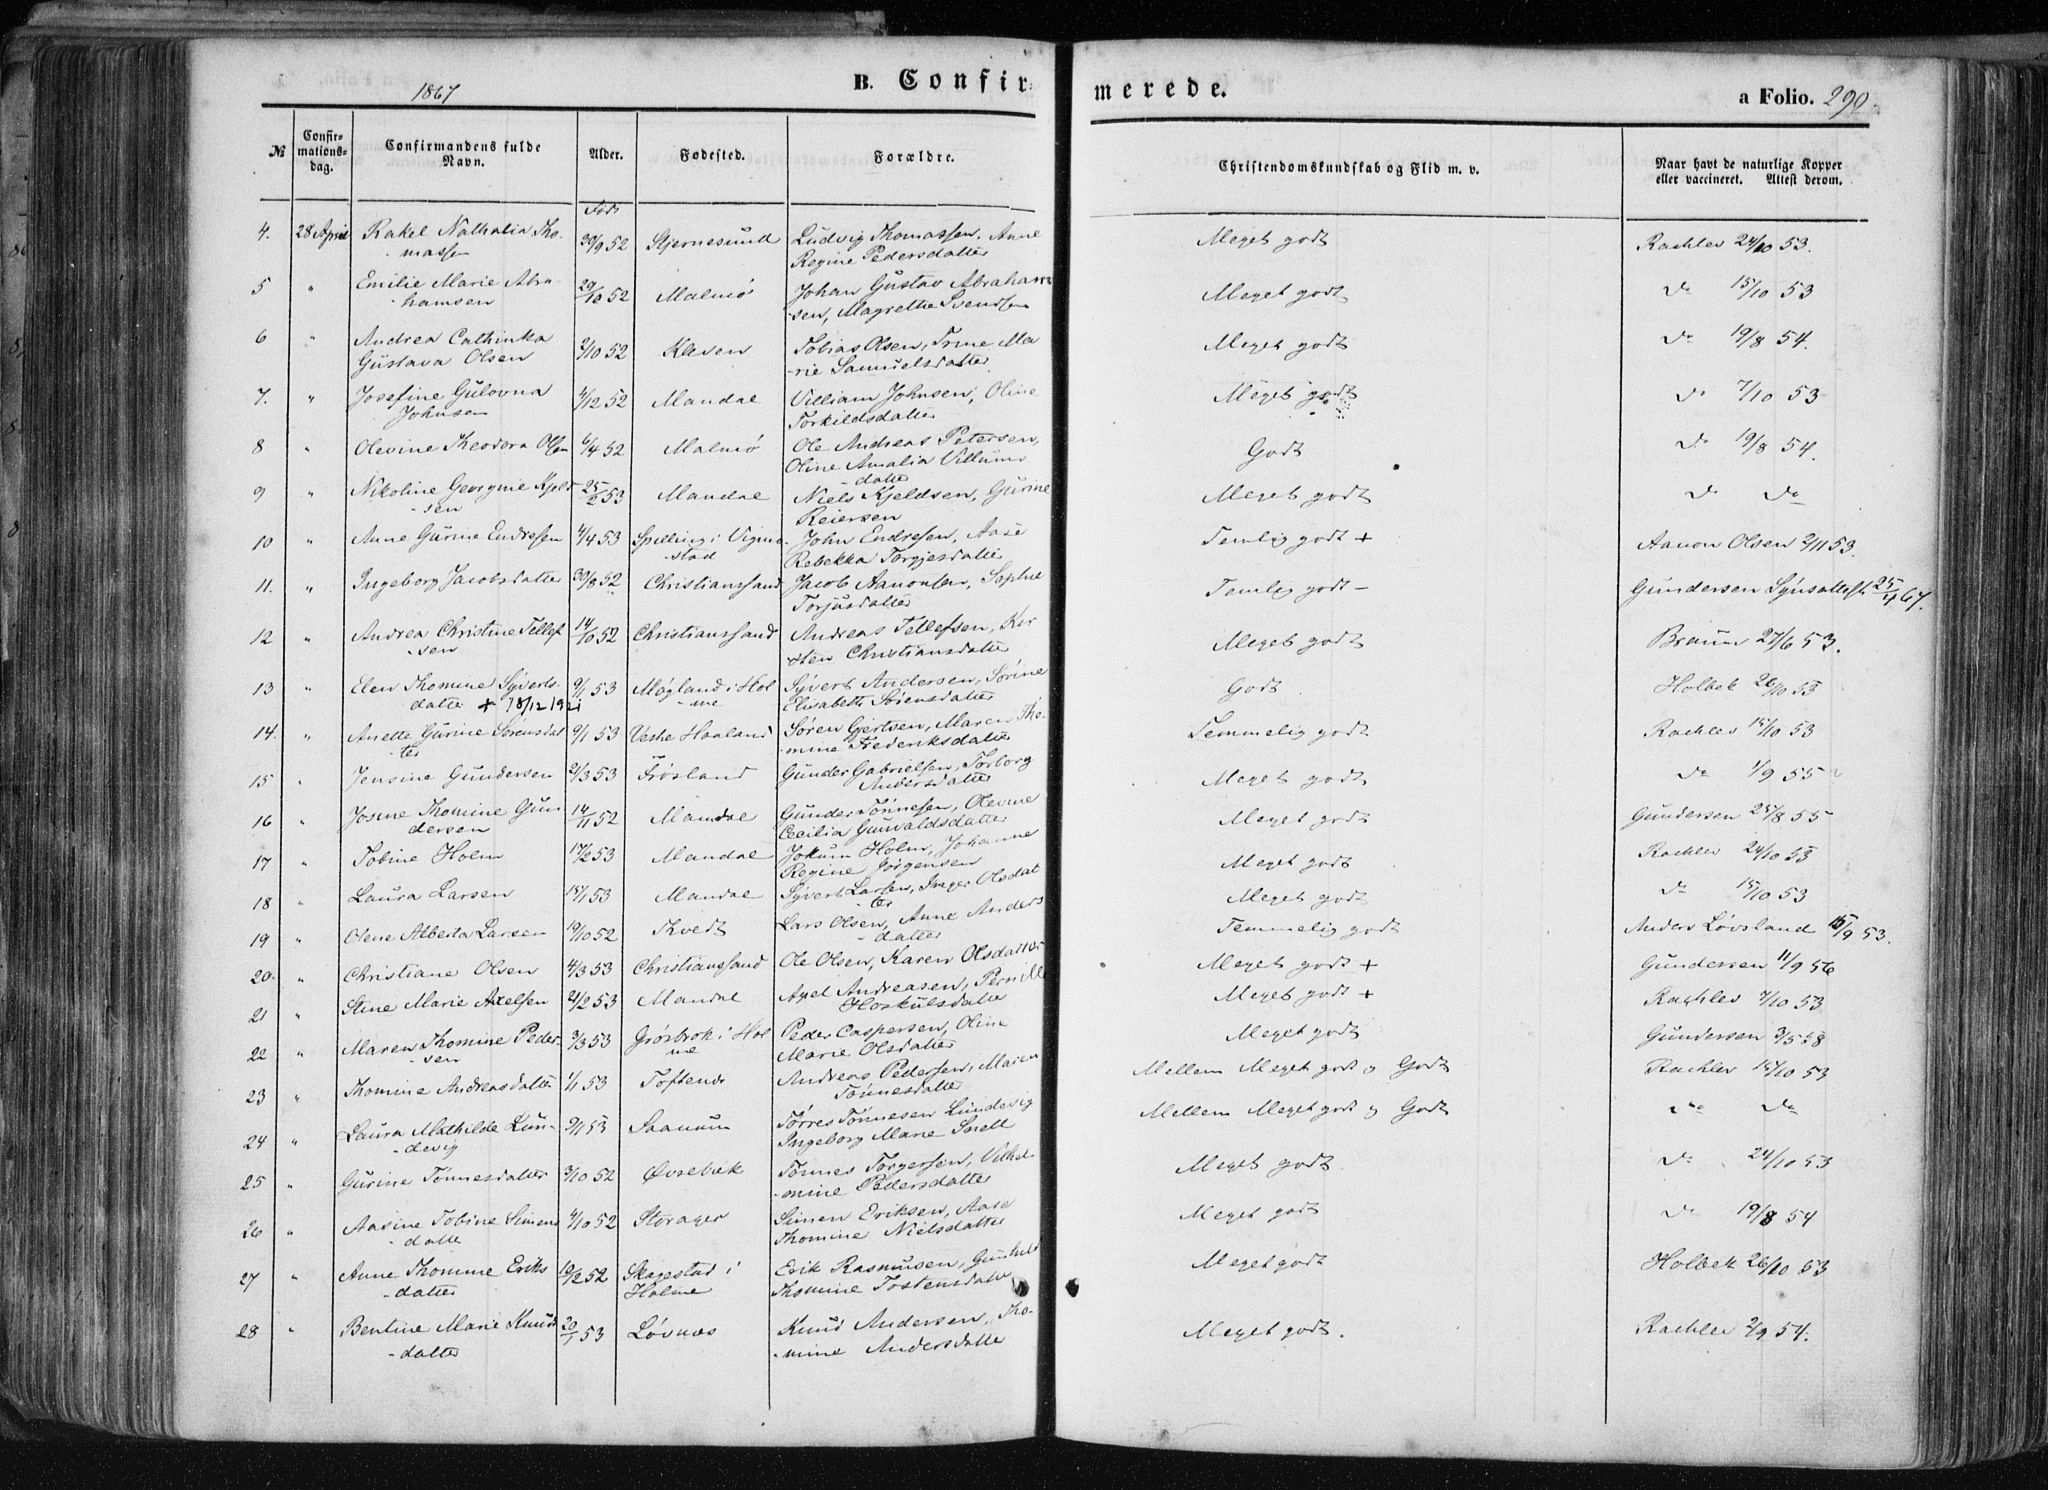 1867 B. Confirmerede. a Folio. 290.
№ Confirmationsdag. Confirmandens fulde Navn. Alder. Fødested. Forældre. Christendomskundskab og Flid m. v. Naar havt de naturlige Kopper eller vaccineret. Attest derom.
Født
4. 28 April Rakel Nathalia Tho- 30/9 52 Stjernesund Ludvig Thomassen, Anne Meget godt Rachlev 24/10 53.
-massen Regine Pedersdatter
5 " Emilie Marie Abra- 29/10 52 Malmø Johan Gustav Abraham Meget godt do 15/10 53
-hamsen -sen, Magrethe Svendsen
6 " Andrea Cathinka 2/10 52 Kleven Tobias Olsen, Trine Ma Meget godt do 19/8 54.
Gustava Olsen -rie Samuelsdatter
7. " Josefine Gulovna 4/12 52 Mandal Villiam Johnsen, Oline Meget godt do 7/10 53
Johnsen Torkildsdatter
8 " Olevine Theodora Olsen 6/4 52 Malmø Ole Andreas Petersen, Godt do 19/8 54.
Oline Amalia Villums
-datter
9 " Nikoline Georgine Kjeld 25/2 53 Mandal Niels Kjeldsen, Gurine Meget godt do do
-sen Reiersen
10 " Anne Gurine Endresen 4/4 53 Spilling i Vigmo- John Endresen, Aase Temlig godt + Aanon Olsen 2/11 53.
-stad Rebekka Torgjesdatter
11. " Ingeborg Jacobsdatter 30/8 52 Christianssand Jacob Aanonsen, Sophie Temlig godt - Gundersen Synsattest 25/4 67.
Torjusdatter
12 " Andrea Christine Tellef 14/10 52 Christianssand Andreas Tellefsen, Kir Meget godt Braun 27/6 53.
-sen -sten Christiansdatter
13 " Elen Thomine Syverts- 9/1 53 Møgland i Hol Syvert Andersen, Sørine Godt Holbek 26/10 53
datter + 18/12 192i -me Elisabeth Sørensdatter
14. " Anette Gurine Sørensdat 9/1 53 Veshe Haaland Søren Gjertsen, Maren Tho- Temmelig godt Rachlev 15/10 53
-ter -mine Frederiksdatter
15 " Jensine Gundersen 21/3 53 Frøsland Gunder Gabrielsen, Torborg Meget godt do 1/9 55
Andersdatter
16 " Josine Thomine Gun 14/11 52 Mandal Gunder Tønnesen, Olevine Meget godt Gundersen 25/8 55
-dersen Cecilia Gunvaldsdatter
17 " Tobine Holm 17/2 53 Mandal Jokum Holm, Johanne Meget godt Rachlev 24/10 53
Regine Jørgensen
18 " Laura Larsen 15/1 53 Mandal Syvert Larsen, Inger Olsdat Meget godt do 15/10 53
-ter
19 " Olene Alberta Larsen 19/10 52 Kvedt Lars Olsen, Anne Anders Temmelig godt Anders Løvsland 15/9 53.
-datter
20. " Christiane Olsen 4/3 53 Christianssand Ole Olsen, Karen Olsdatter Meget godt + Gundersen 11/9 56
21 " Stine Marie Axelsen 21/2 53 Mandal Axel Andreasen, Pernille Meget godt + Rachlev 7/10 53
Hoskulsdatter
22 " Maren Thomine Peder- 3/3 53 Grøsbrok i Hol Peder Caspersen, Oline Meget godt Gundersen 3/5 58
-sen me Marie Olsdatter
23 " Thomine Andreasdatter 1/1 53 Toftenes Andreas Pedersen, Maren Mellem Meget godt og Godt Rachlev 15/10 53
Tønnesdatter
24 " Laura Mathilde Lun- 9/1 53 Saanum Tørres Tønnesen Lundevig Mellem Meget godt og Godt do do
-devig Ingeborg Marie Snell
25 " Gurine Tønnesdatter 3/10 52 Øvrebæk Tønnes Torgersen, Vilhel Meget godt. do 24/10 53
-mine Pedersdatter
26 " Aasine Tobine Simens 4/10 52 Storager Simen Eriksen, Aase Meget godt do 19/8 54
-datter Thomine Nielsdatter
27 " Anne Thomine Eriks 19/2 52 Skagestad i Erik Rasmusen, Gunhild Meget godt Holbek 26/10 53
-datter Holme Thomine Tostensdatter
28 " Bentine Marie Knud 20/1 53 Løvnæs Knud Andersen, Tho- Meget godt. Rachlev 2/9 54.
-datter -mine Andersdatter